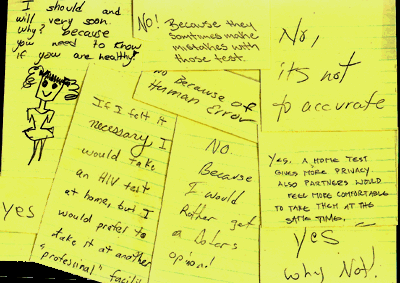 I should and
will very soon.
why? because
you need to know
if you are healthy.
yes
NO! Because they
somtimes make
mistakes with
those test.
no Because of
Human Error
No,
it's not
to accurate
If I felt it
necessary, I
would take
an HIV test
at home, but I
would prefer to
take it at another
"professional" facili
NO.
Because
I would
Rather get
a Doters
opion!
Yes, A HOME TEST
GIVES MORE PRIVACY.
ALSO PARTNERS WOULD
FEEL MORE COMFORTABLE
TO TAKE THEM AT THE
SAME TIME.
yes
why Not!